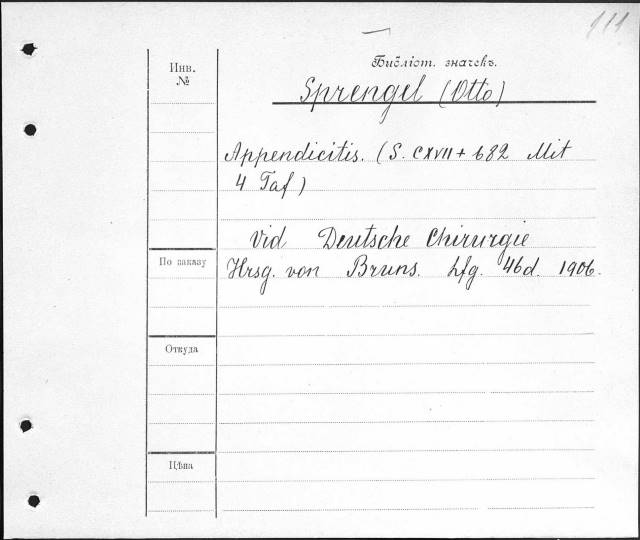 111
Инв.
№
Библіот. значекъ.
Sprengel (Otto)
Appendicitis. (S. CXVII + 682 Mit
4 Taf)
Vid Deutsche Chirurgie
По заказу
Hrsg. von Bruns. Lfg. 46d. 1906.
Откуда
Цѣна